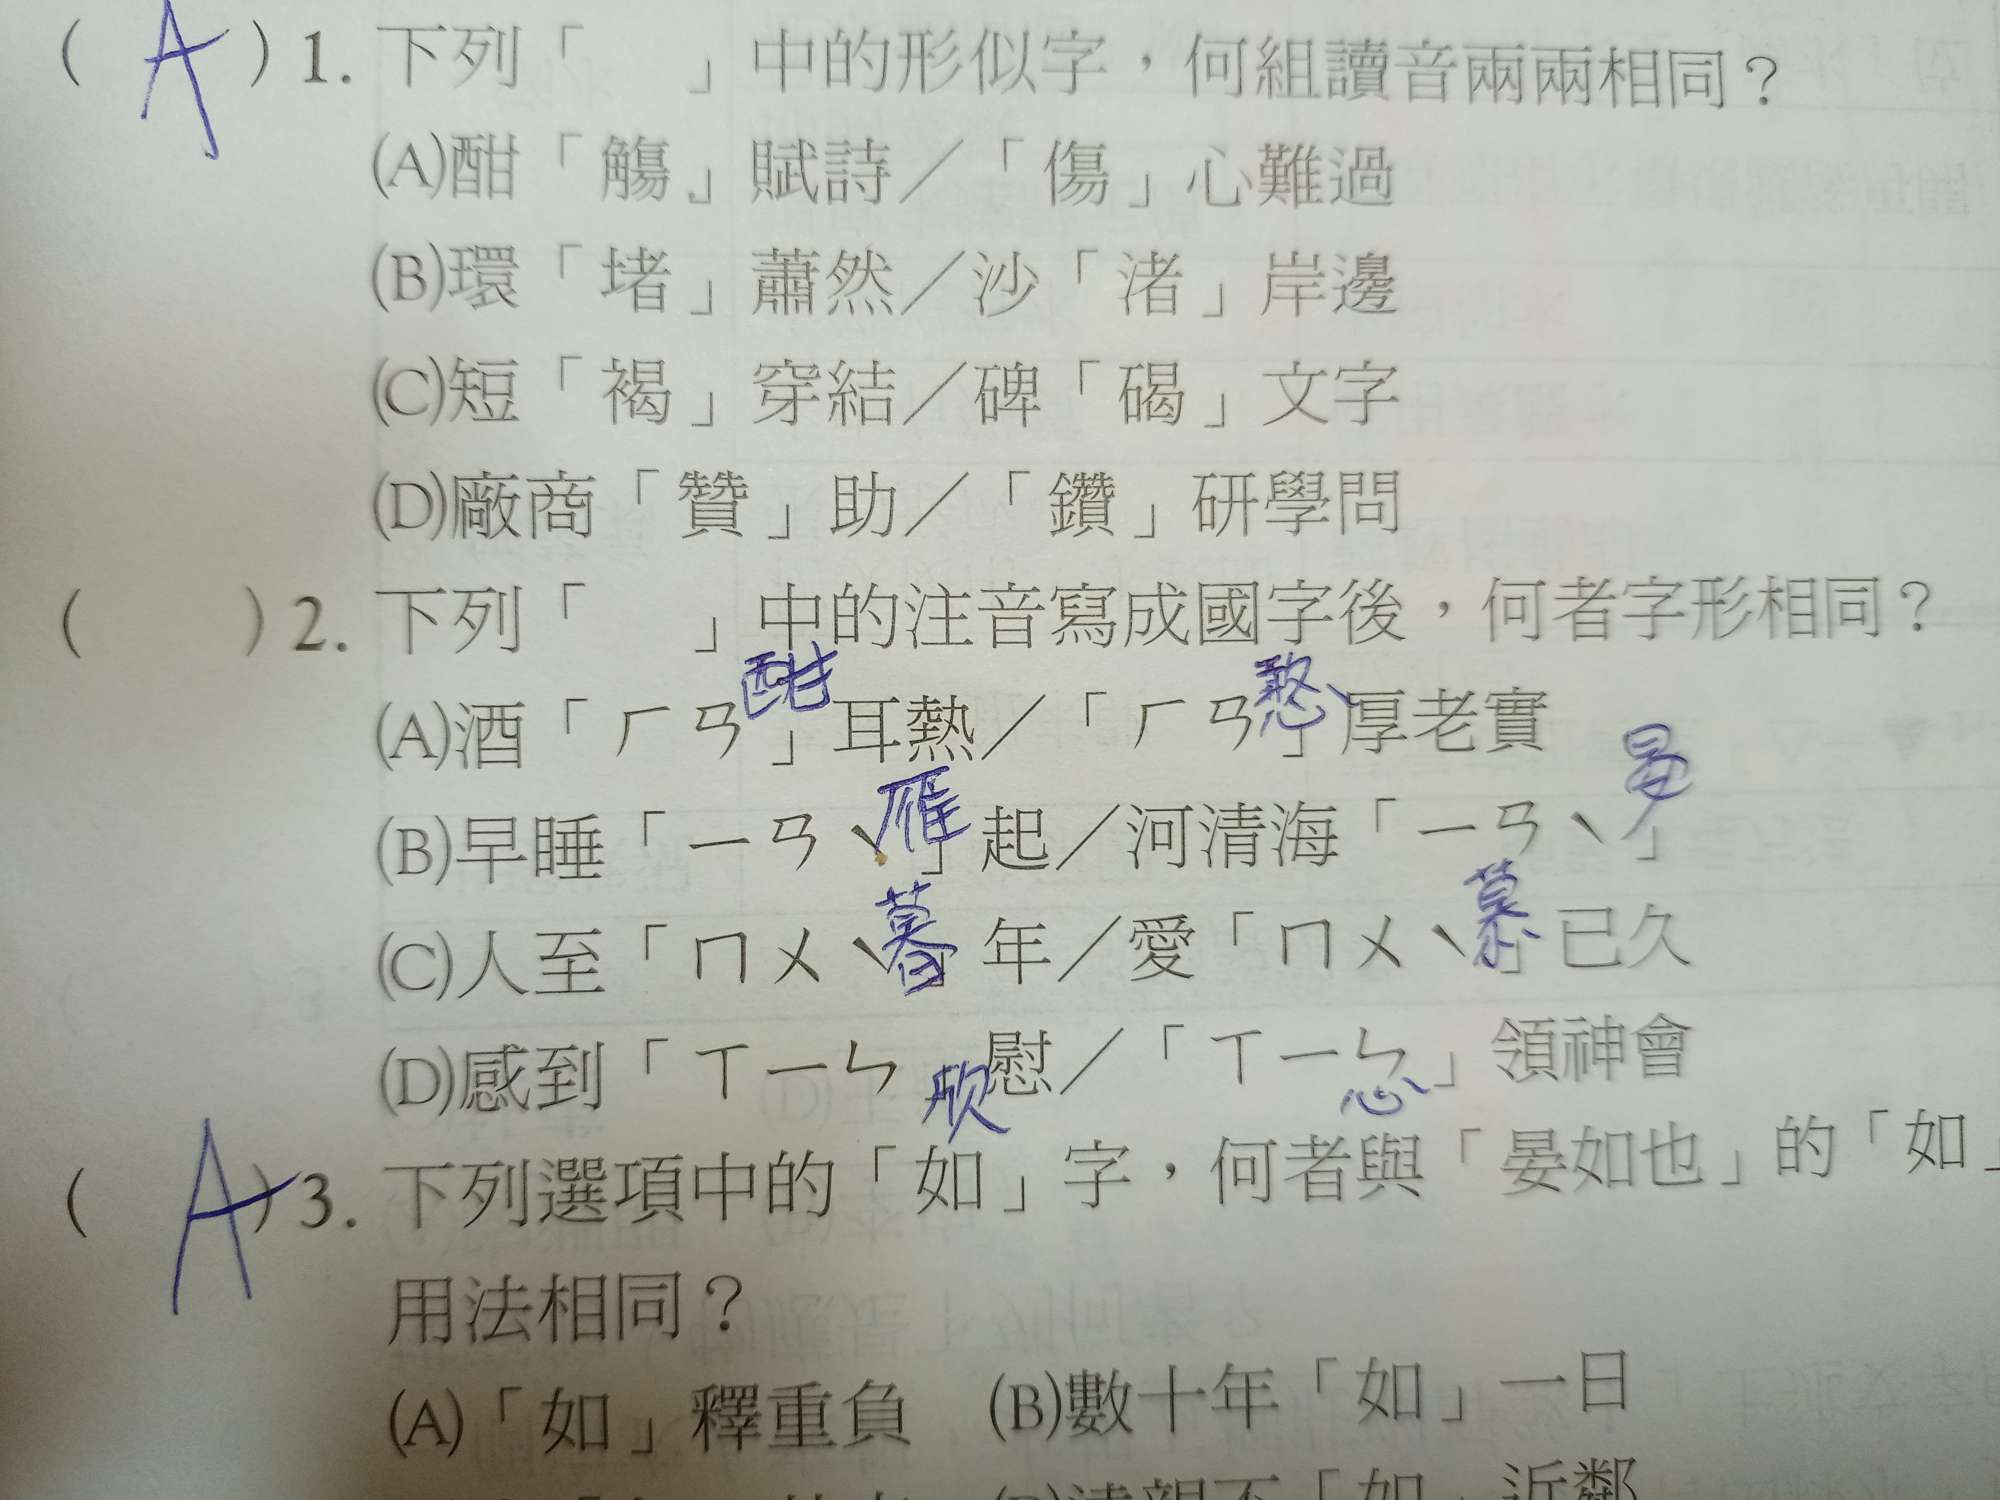 ( A ) 1. 下列「　」中的形似字，何組讀音兩兩相同？
(A)酣「觴」賦詩／「傷」心難過
(B)環「堵」蕭然／沙「渚」岸邊
(C)短「褐」穿結／碑「碣」文字
(D)廠商「贊」助／「鑽」研學問
(　) 2. 下列「　」中的注音寫成國字後，何者字形相同？
酣 憨
(A)酒「ㄏㄢ」耳熱／「ㄏㄢ」厚老實
雁 晏
(B)早睡「ㄧㄢˋ」起／河清海「ㄧㄢˋ」
暮 慕
(C)人至「ㄇㄨˋ」年／愛「ㄇㄨˋ」已久
(D)感到「ㄒㄧㄣ 慰／「ㄒㄧㄣ」領神會
欣 心
( A ) 3. 下列選項中的「如」字，何者與「晏如也」的「如」
用法相同？
(A)「如」釋重負　(B)數十年「如」一日
(D)遠親不「如」近鄰